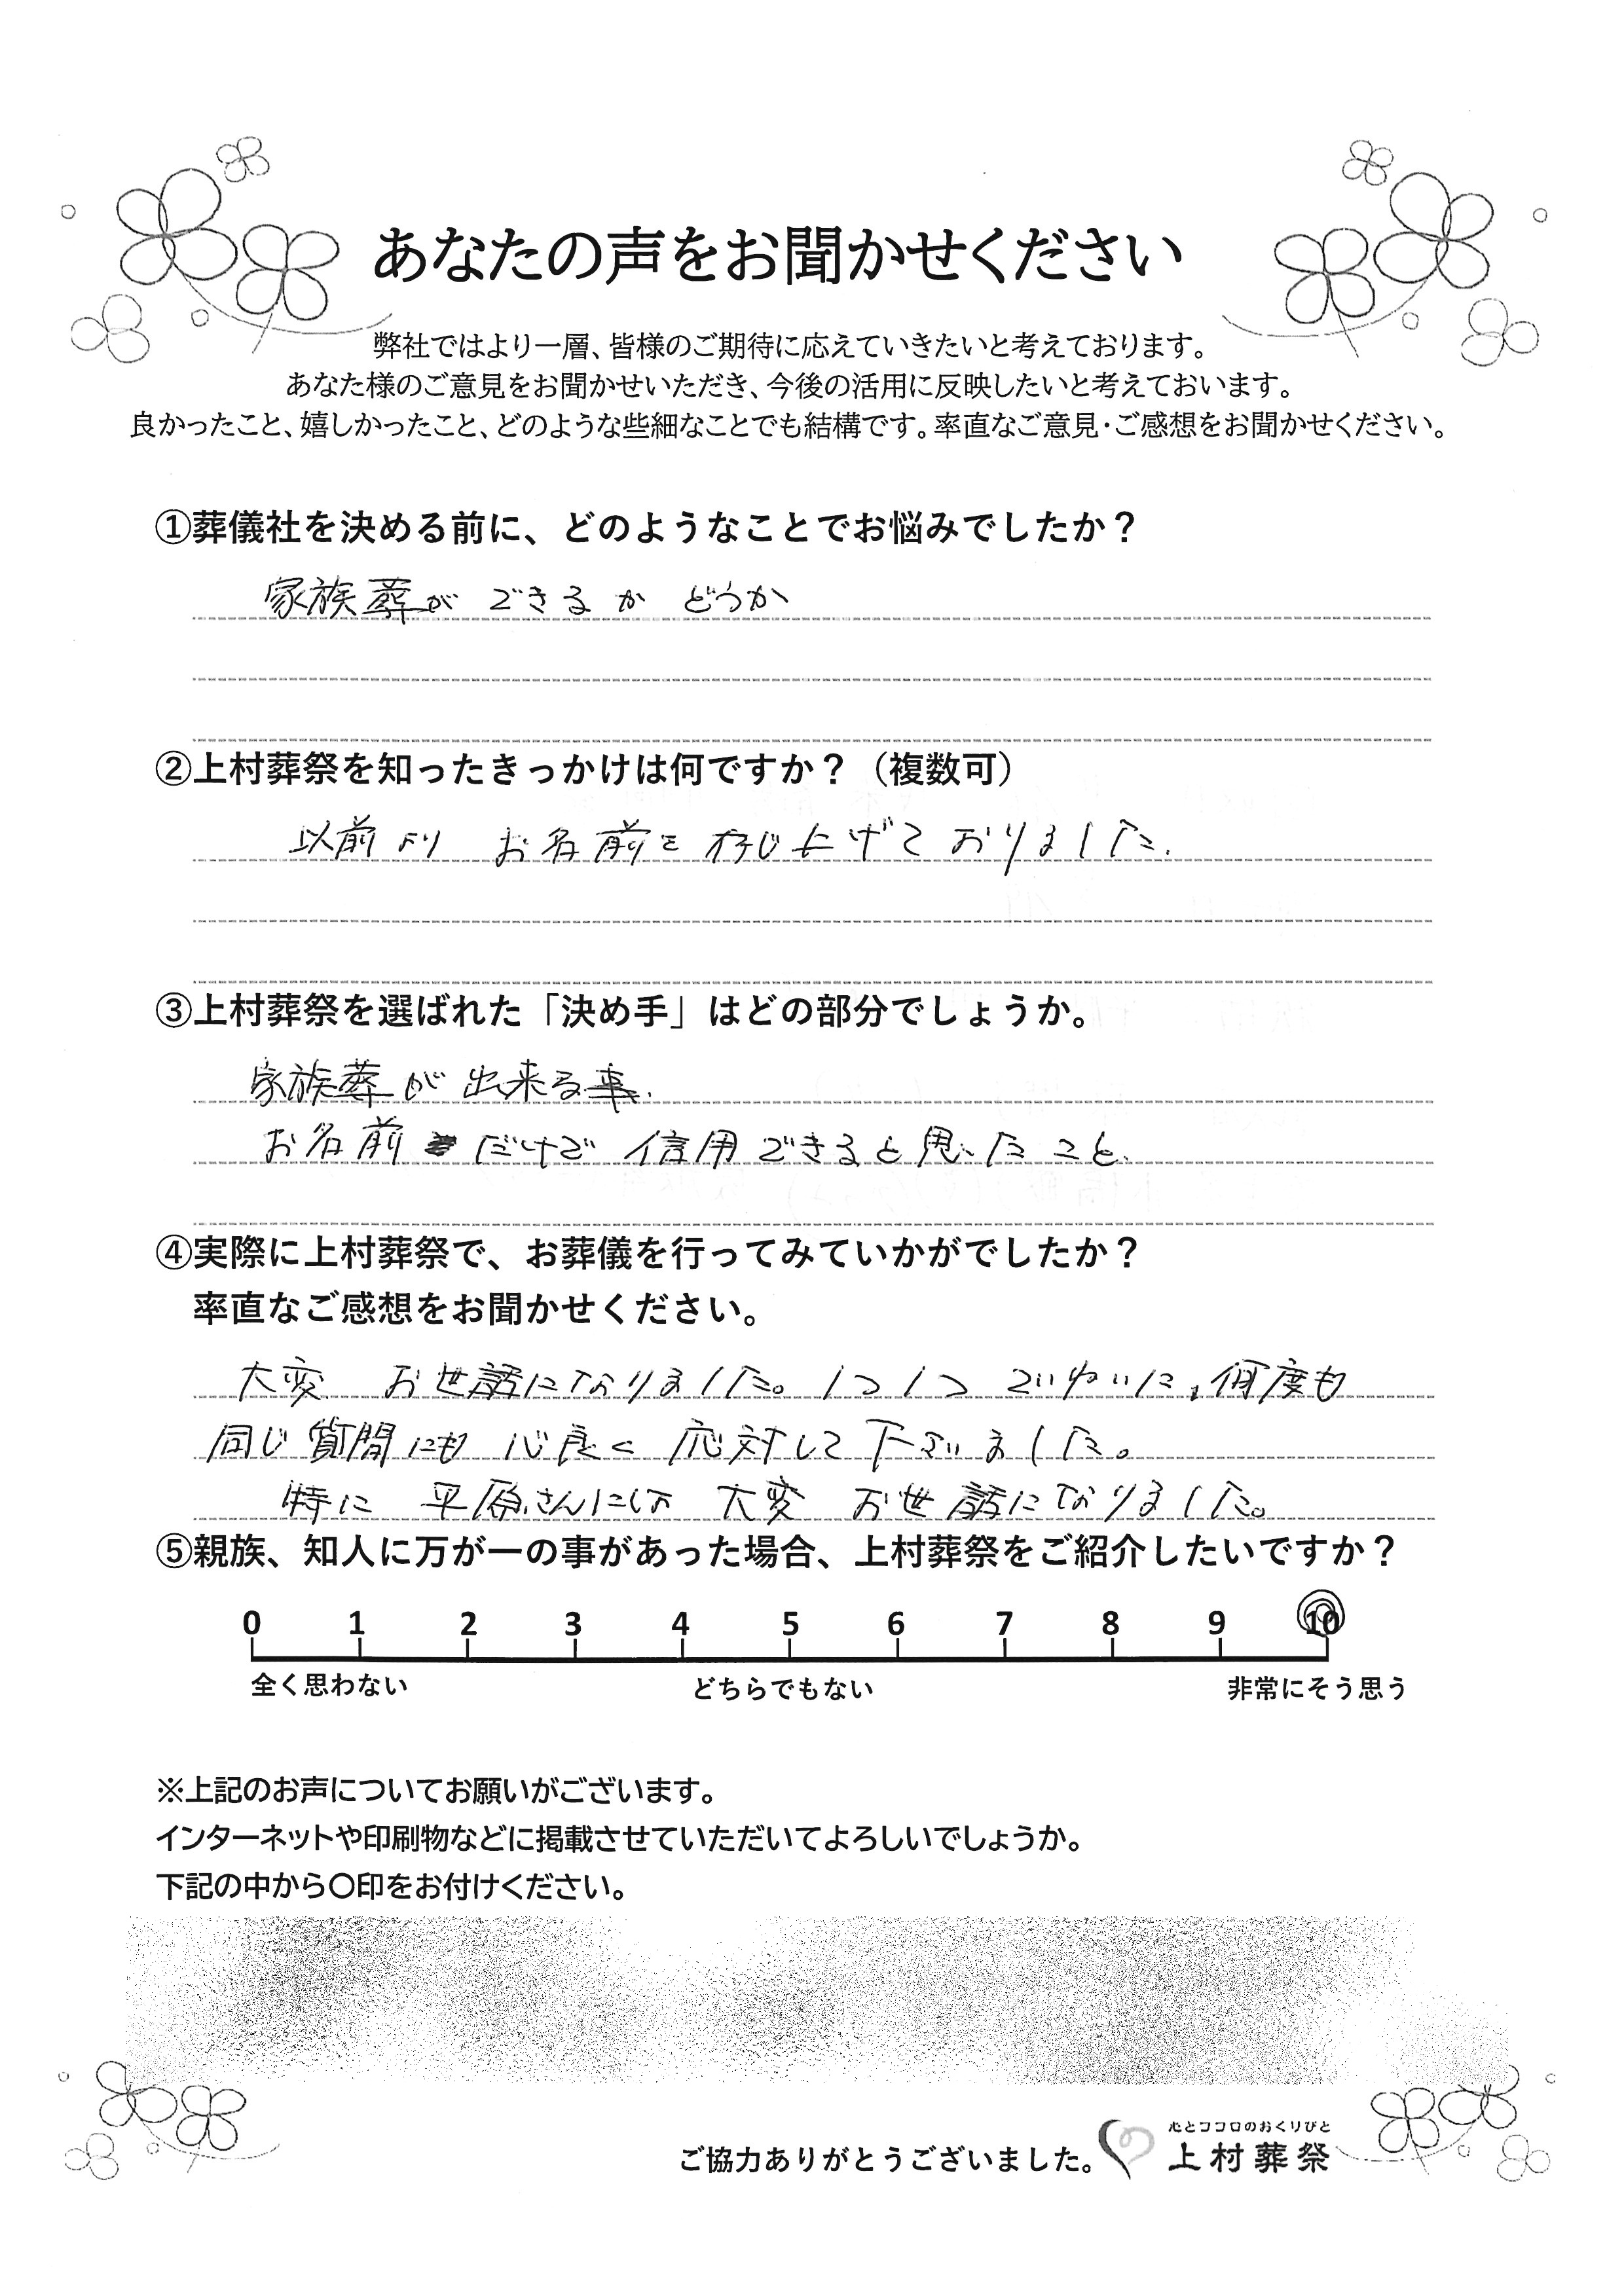 あなたの声をお聞かせください
弊社ではより一層、皆様のご期待に応えていきたいと考えております。
あなた様のご意見をお聞かせいただき、今後の活用に反映したいと考えておいます。
良かったこと、嬉しかったこと、どのような些細なことでも結構です。率直なご意見・ご感想をお聞かせください。
①葬儀社を決める前に、どのようなことでお悩みでしたか？
家族葬ができるかどうか
②上村葬祭を知ったきっかけは何ですか？（複数可）
以前より お名前を存じ上げておりました.
③上村葬祭を選ばれた「決め手」はどの部分でしょうか。
家族葬が出来る事.
お名前だけで信用できると思ったこと.
④実際に上村葬祭で、お葬儀を行ってみていかがでしたか？
率直なご感想をお聞かせください。
大変 お世話になりました。1つ1つ ていねいに、何度も
同じ質問にも 心良く 応対して下さいました。
特に 平原さんには 大変 お世話になりました。
⑤親族、知人に万が一の事があった場合、上村葬祭をご紹介したいですか？
0 1 2 3 4 5 6 7 8 9 10
全く思わない どちらでもない 非常にそう思う
※上記のお声についてお願いがございます。
インターネットや印刷物などに掲載させていただいてよろしいでしょうか。
下記の中から〇印をお付けください。
心とココロのおくりびと
ご協力ありがとうございました。 上村葬祭